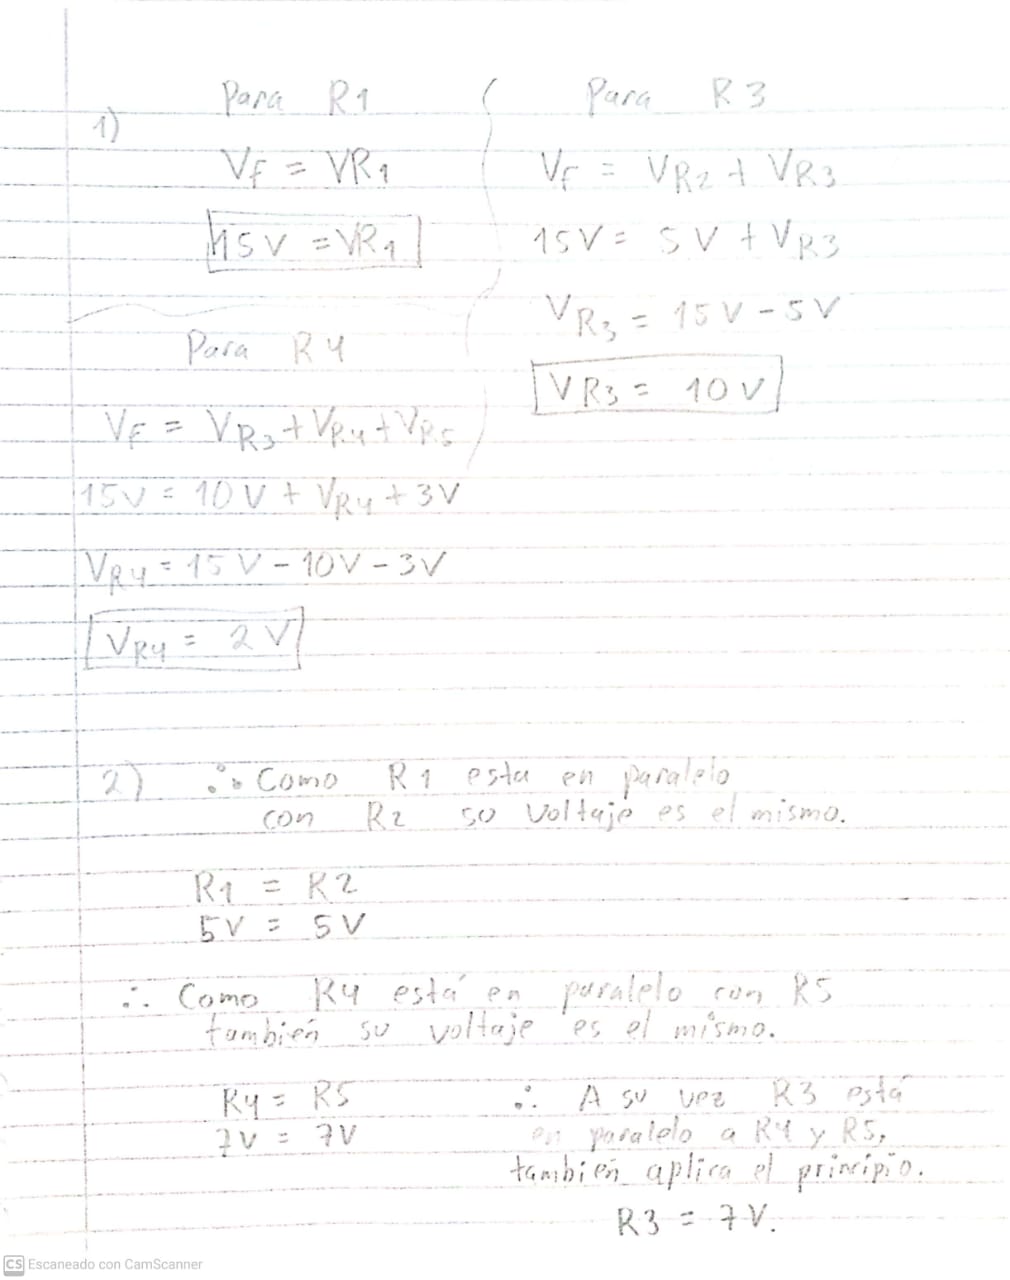 1)
Para R1
VF = VR1
15V = VR1
Para R3
VF = VR2 + VR3
15V = 5V + VR3
VR3 = 15V - 5V
VR3 = 10V
Para R4
VF = VR3 + VR4 + VR5
15V = 10V + VR4 + 3V
VR4 = 15V - 10V - 3V
VR4 = 2V
2) ∴ Como R1 esta en paralelo
con R2 su voltaje es el mismo.
R1 = R2
5V = 5V
∴ Como R4 está en paralelo con R5
también su voltaje es el mismo.
R4 = R5
7V = 7V
∴ A su vez R3 está
en paralelo a R4 y R5,
también aplica el principio.
R3 = 7V.
CS Escaneado con CamScanner